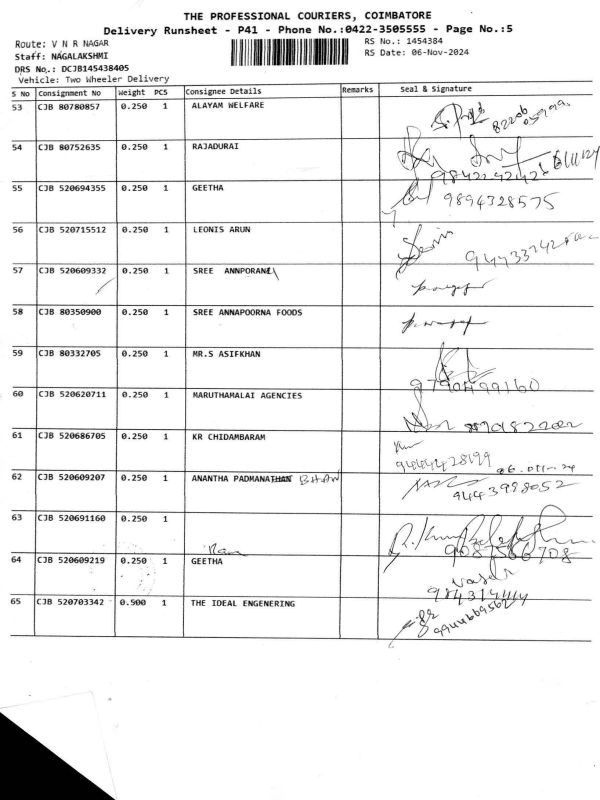 THE PROFESSIONAL COURIERS, COIMBATORE
Delivery Runsheet - P41 - Phone No.:0422-3505555 - Page No.:5
Route: V N R NAGAR
RS No.: 1454384
Staff: NAGALAKSHMI
RS Date: 06-Nov-2024
DRS No.: DCJB145438405
Vehicle: Two Wheeler Delivery
S No Consignment No Weight PCS Consignee Details Remarks Seal & Signature
53 CJB 80780857 0.250 1 ALAYAM WELFARE
54 CJB 80752635 0.250 1 RAJADURAI
6/11/24
55 CJB 520694355 0.250 1 GEETHA
9894328575
56 CJB 520715512 0.250 1 LEONIS ARUN
57 CJB 520609332 0.250 1 SREE ANNPORANI
58 CJB 80350900 0.250 1 SREE ANNAPOORNA FOODS
59 CJB 80332705 0.250 1 MR.S ASIFKHAN
60 CJB 520620711 0.250 1 MARUTHAMALAI AGENCIES
61 CJB 520686705 0.250 1 KR CHIDAMBARAM
62 CJB 520609207 0.250 1 ANANTHA PADMANATHAN BHAN
9443998052
63 CJB 520691160 0.250 1
Ram
9087566708
64 CJB 520609219 0.250 1 GEETHA
65 CJB 520703342 0.900 1 THE IDEAL ENGENERING
9944669562